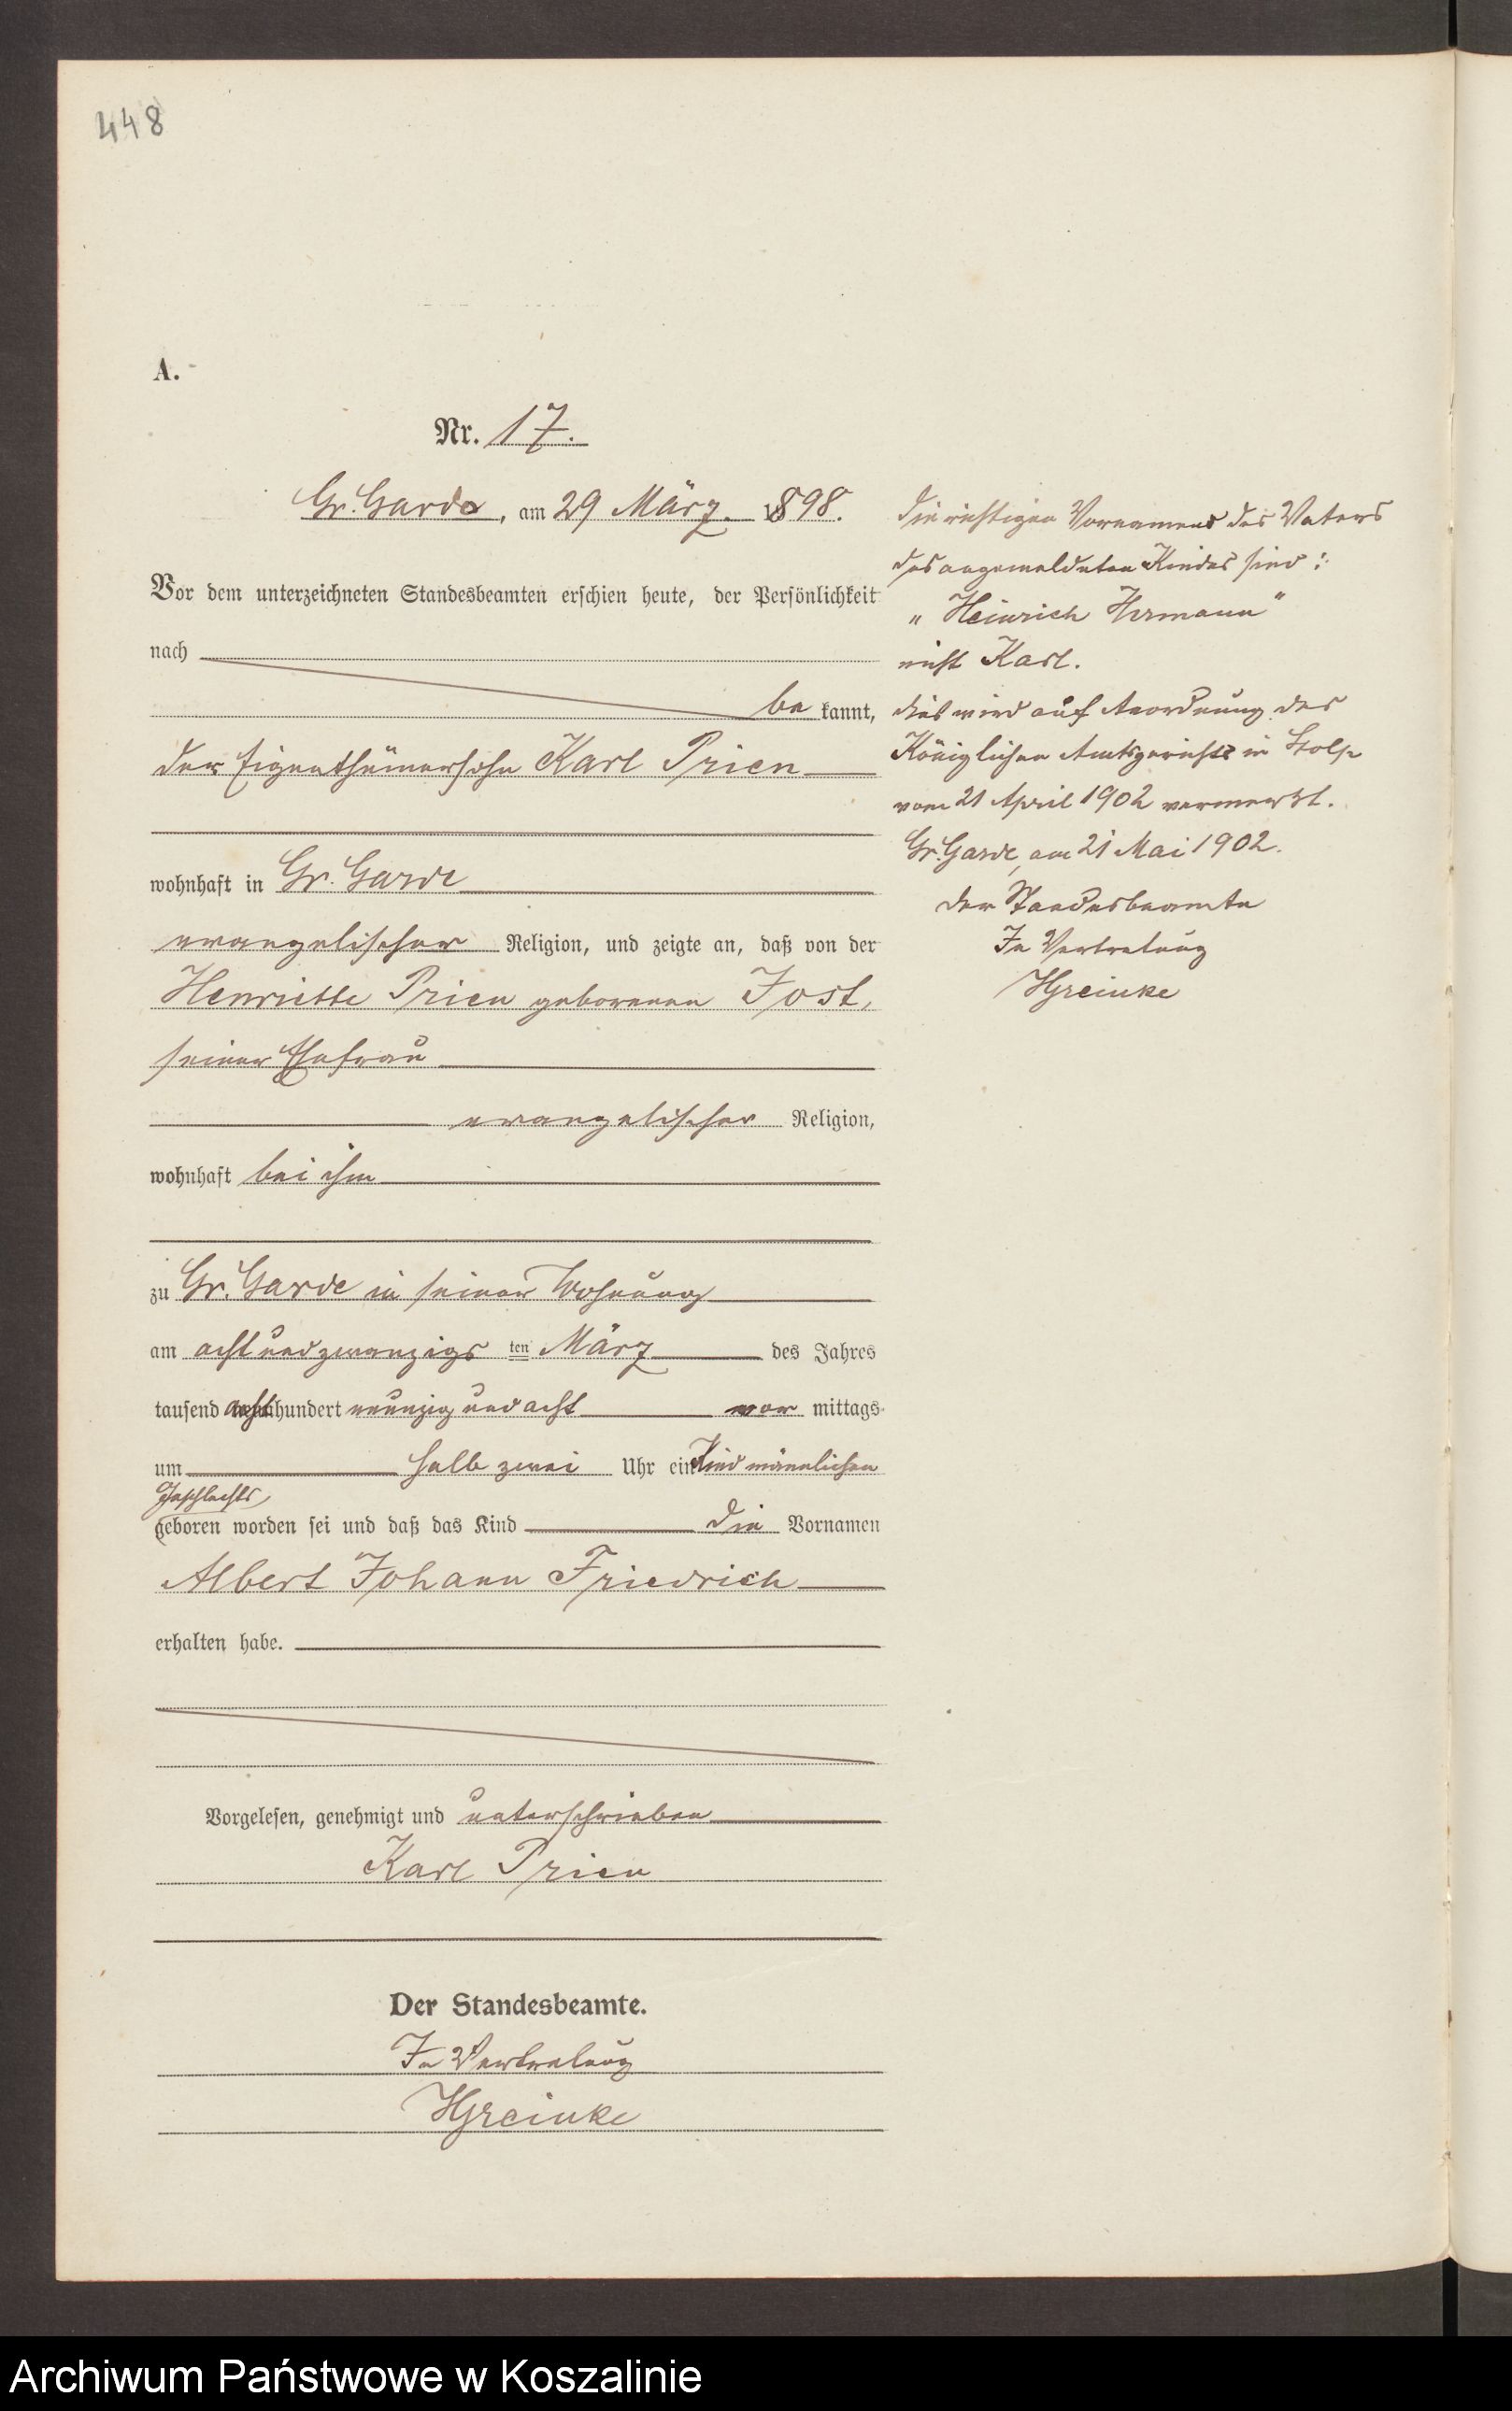 448
A.
Nr. 17.
Gr. Garde, am 29 März 1898.
Vor dem unterzeichneten Standesbeamten erschien heute, der Persönlichkeit
nach
be kannt,
der Eigenthümersohn Karl Prien
wohnhaft in Gr. Garde
evangelischer Religion, und zeigte an, daß von der
Henriette Prien geborenen Jost,
seiner Ehefrau
evangelischer Religion,
wohnhaft bei ihm
zu Gr. Garde in seiner Wohnung
am acht und zwanzigs ten März des Jahres
tausend acht hundert neunzig und acht vor mittags
um halb zwei Uhr ein Kind männlichen
Geschlechts
geboren worden sei und daß das Kind die Vornamen
Albert Johann Friedrich
erhalten habe.
Vorgelesen, genehmigt und unterschrieben
Karl Prien
Der Standesbeamte.
In Vertretung
HGreinke
Die richtigen Vornamens des Vaters
des angemeldeten Kindes sind:
„Heinrich Hermann“
nicht Karl.
Dies wird auf Anordnung des
Königlichen Amtsgerichts in Stolp
vom 21 April 1902 vermerkt.
Gr. Garde, am 21 Mai 1902.
Der Standesbeamte
In Vertretung
HGreinke
Archiwum Państwowe w Koszalinie